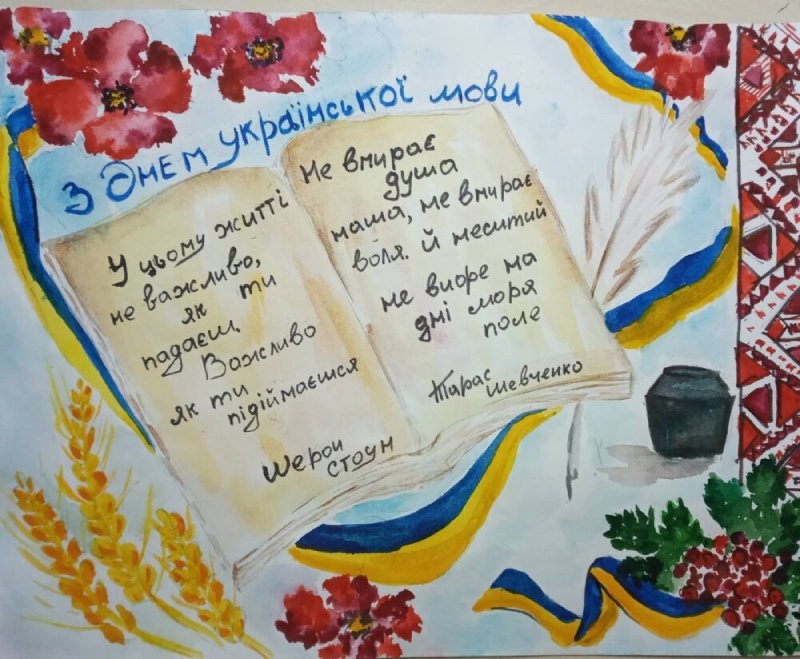 З Днем української мови
У цьому житті
не важливо,
як ти
падаєш.
Важливо
як ти
підіймаєшся
Шерон
Стоун
Не вмирає
душа
наша, не вмирає
воля. Й неситий
не виоре на
дні моря
поле
Тарас
Шевченко